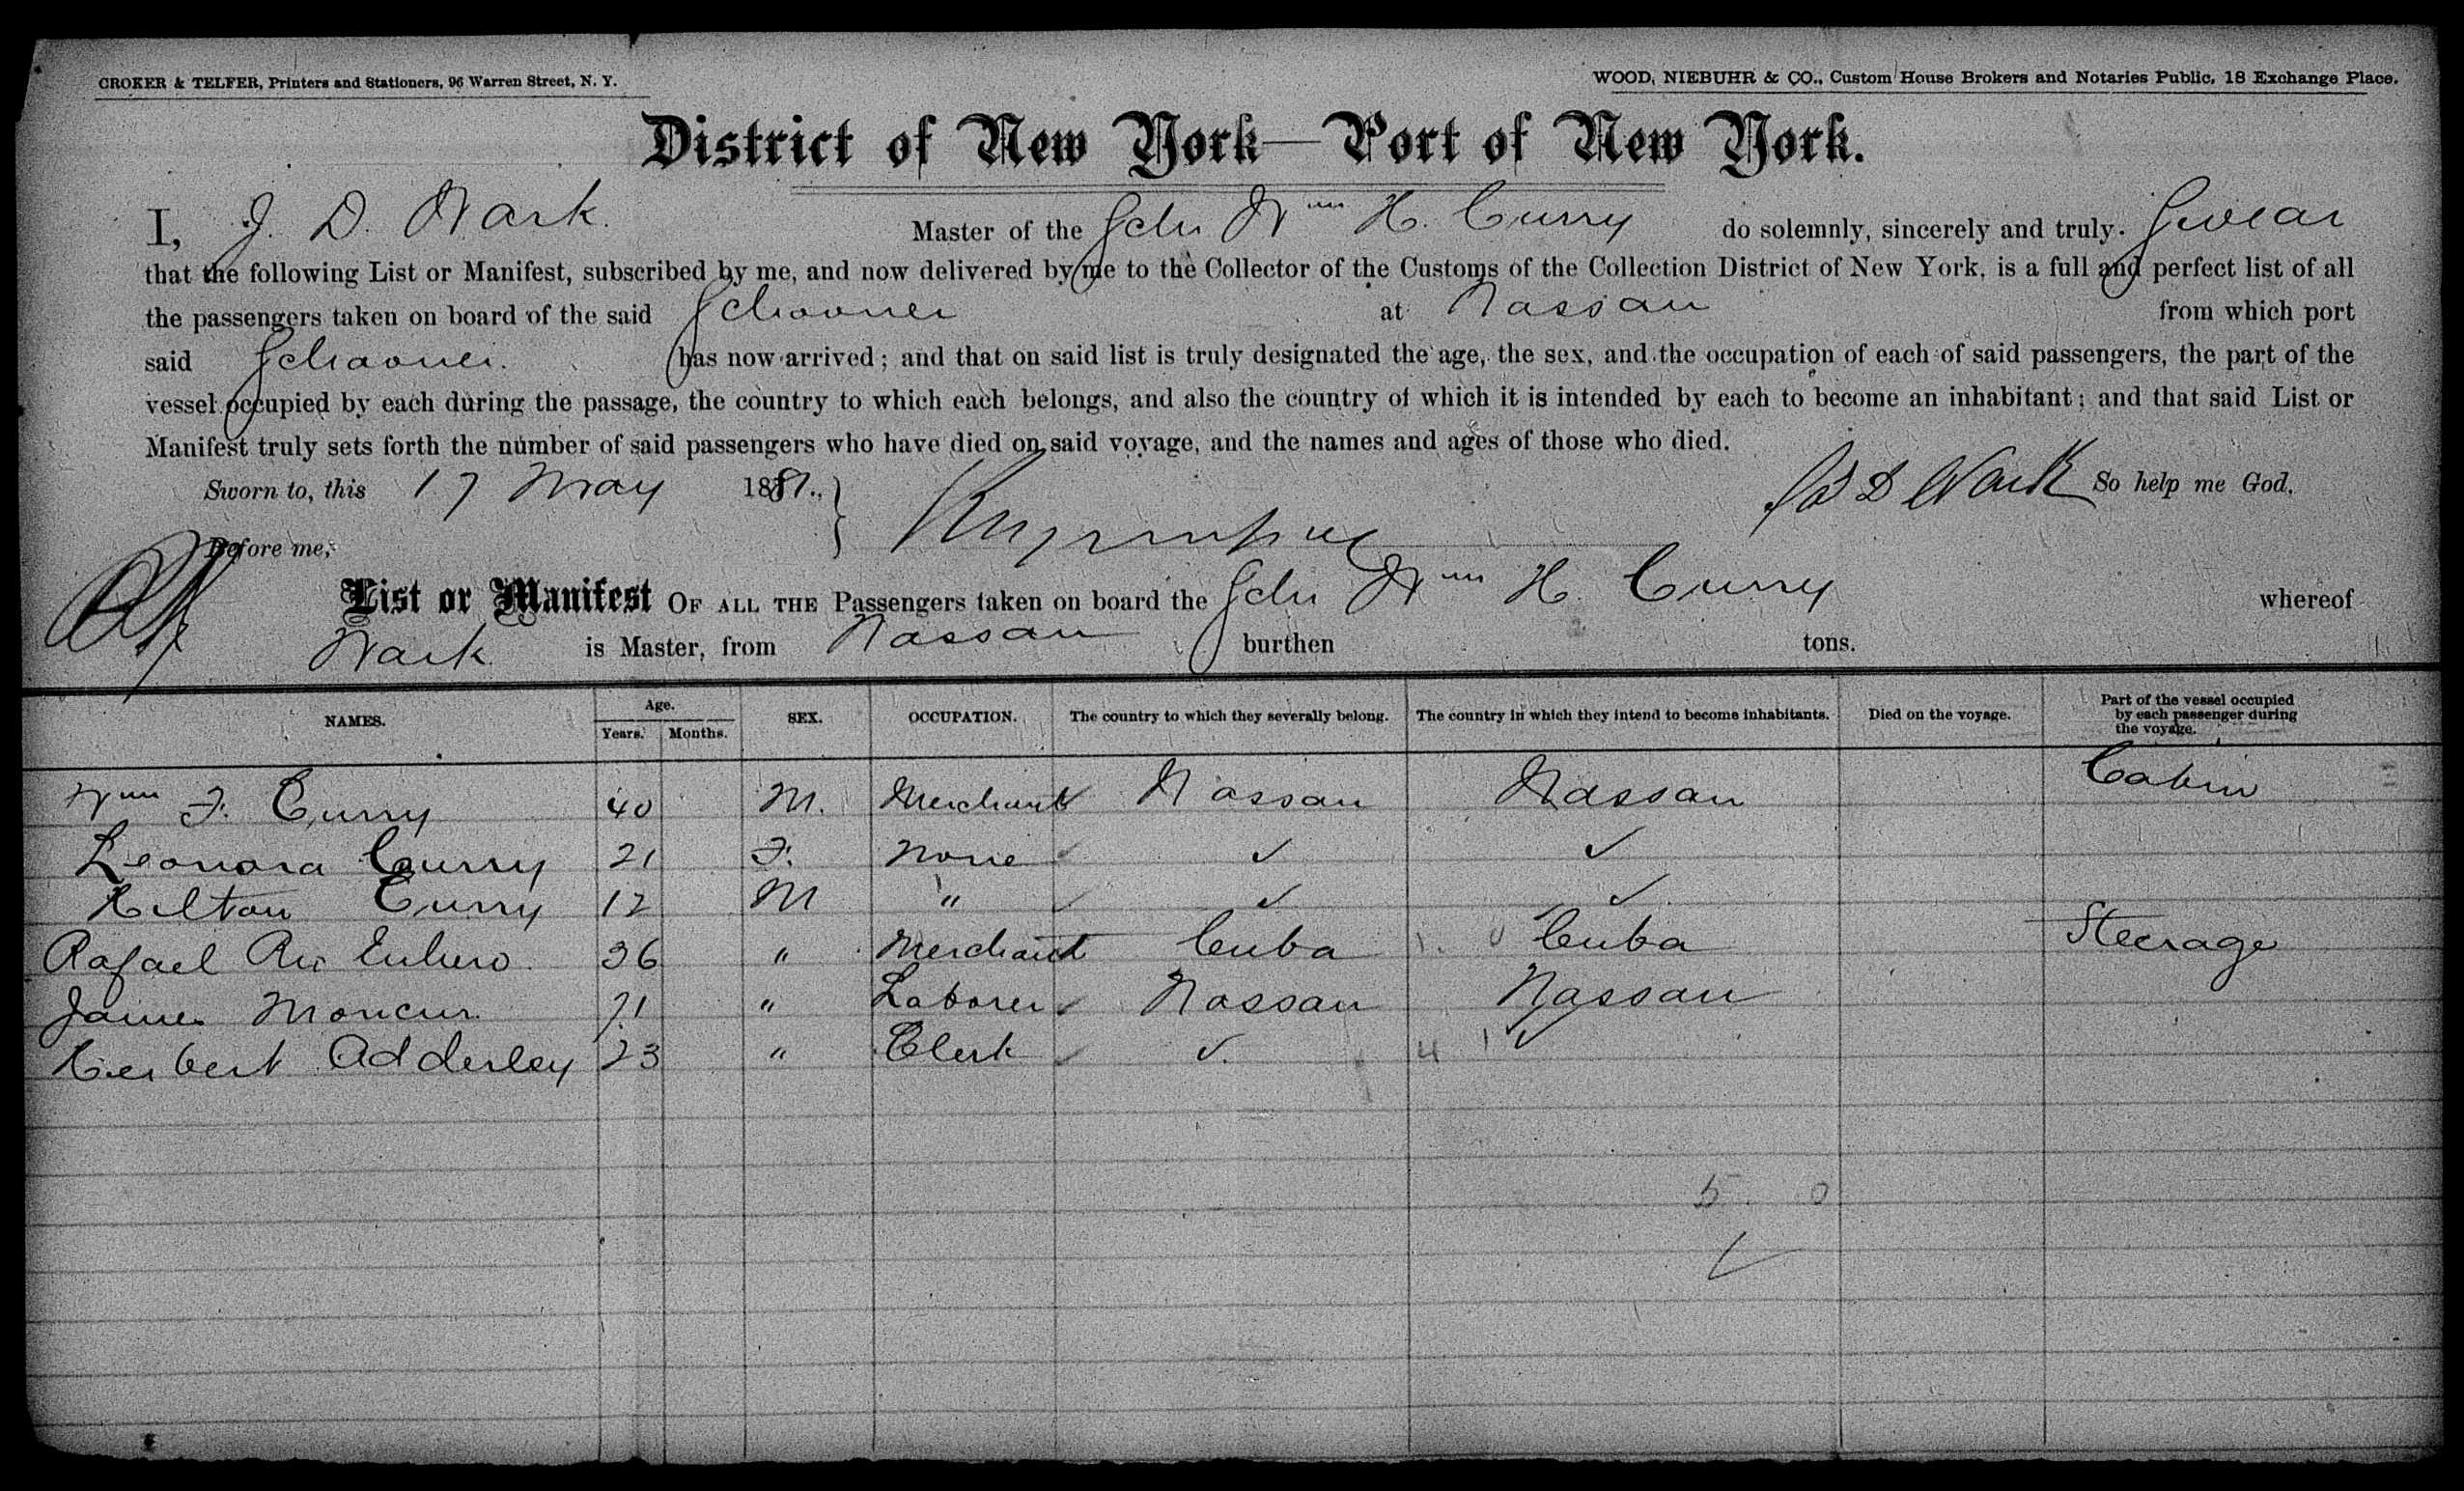 CROKER & TELFER, Printers and Stationers, 96 Warren Street, N. Y.
WOOD, NIEBUHR & CO., Custom House Brokers and Notaries Public, 18 Exchange Place.
District of New York—Port of New York.
I, J. D. Wark. Master of the Schr Wm H. Curry do solemnly, sincerely and truly Swear
that the following List or Manifest, subscribed by me, and now delivered by me to the Collector of the Customs of the Collection District of New York, is a full and perfect list of all
the passengers taken on board of the said Schooner at Nassau from which port
said Schooner. has now arrived; and that on said list is truly designated the age, the sex, and the occupation of each of said passengers, the part of the
vessel occupied by each during the passage, the country to which each belongs, and also the country of which it is intended by each to become an inhabitant; and that said List or
Manifest truly sets forth the number of said passengers who have died on said voyage, and the names and ages of those who died.
Sworn to, this 17 May 1881. J D Wark So help me God.
Before me,
List or Manifest OF ALL THE Passengers taken on board the Schr Wm H. Curry whereof
Wark is Master, from Nassau burthen tons.
NAMES. Age. Years. Months. SEX. OCCUPATION. The country to which they severally belong. The country in which they intend to become inhabitants. Died on the voyage. Part of the vessel occupied by each passenger during the voyage.
Wm F. Curry 40 M. Merchant Nassau Nassau Cabin
Leonora Curry 21 F. None ✓ ✓
Hilton Curry 12 M " ✓ ✓
Rafael 36 " Merchant Cuba Cuba Steerage
James Moncur 71 " Laborer Nassau Nassau
Herbert Adderley 23 " Clerk ✓ 4 1 ✓
5. 0
✓